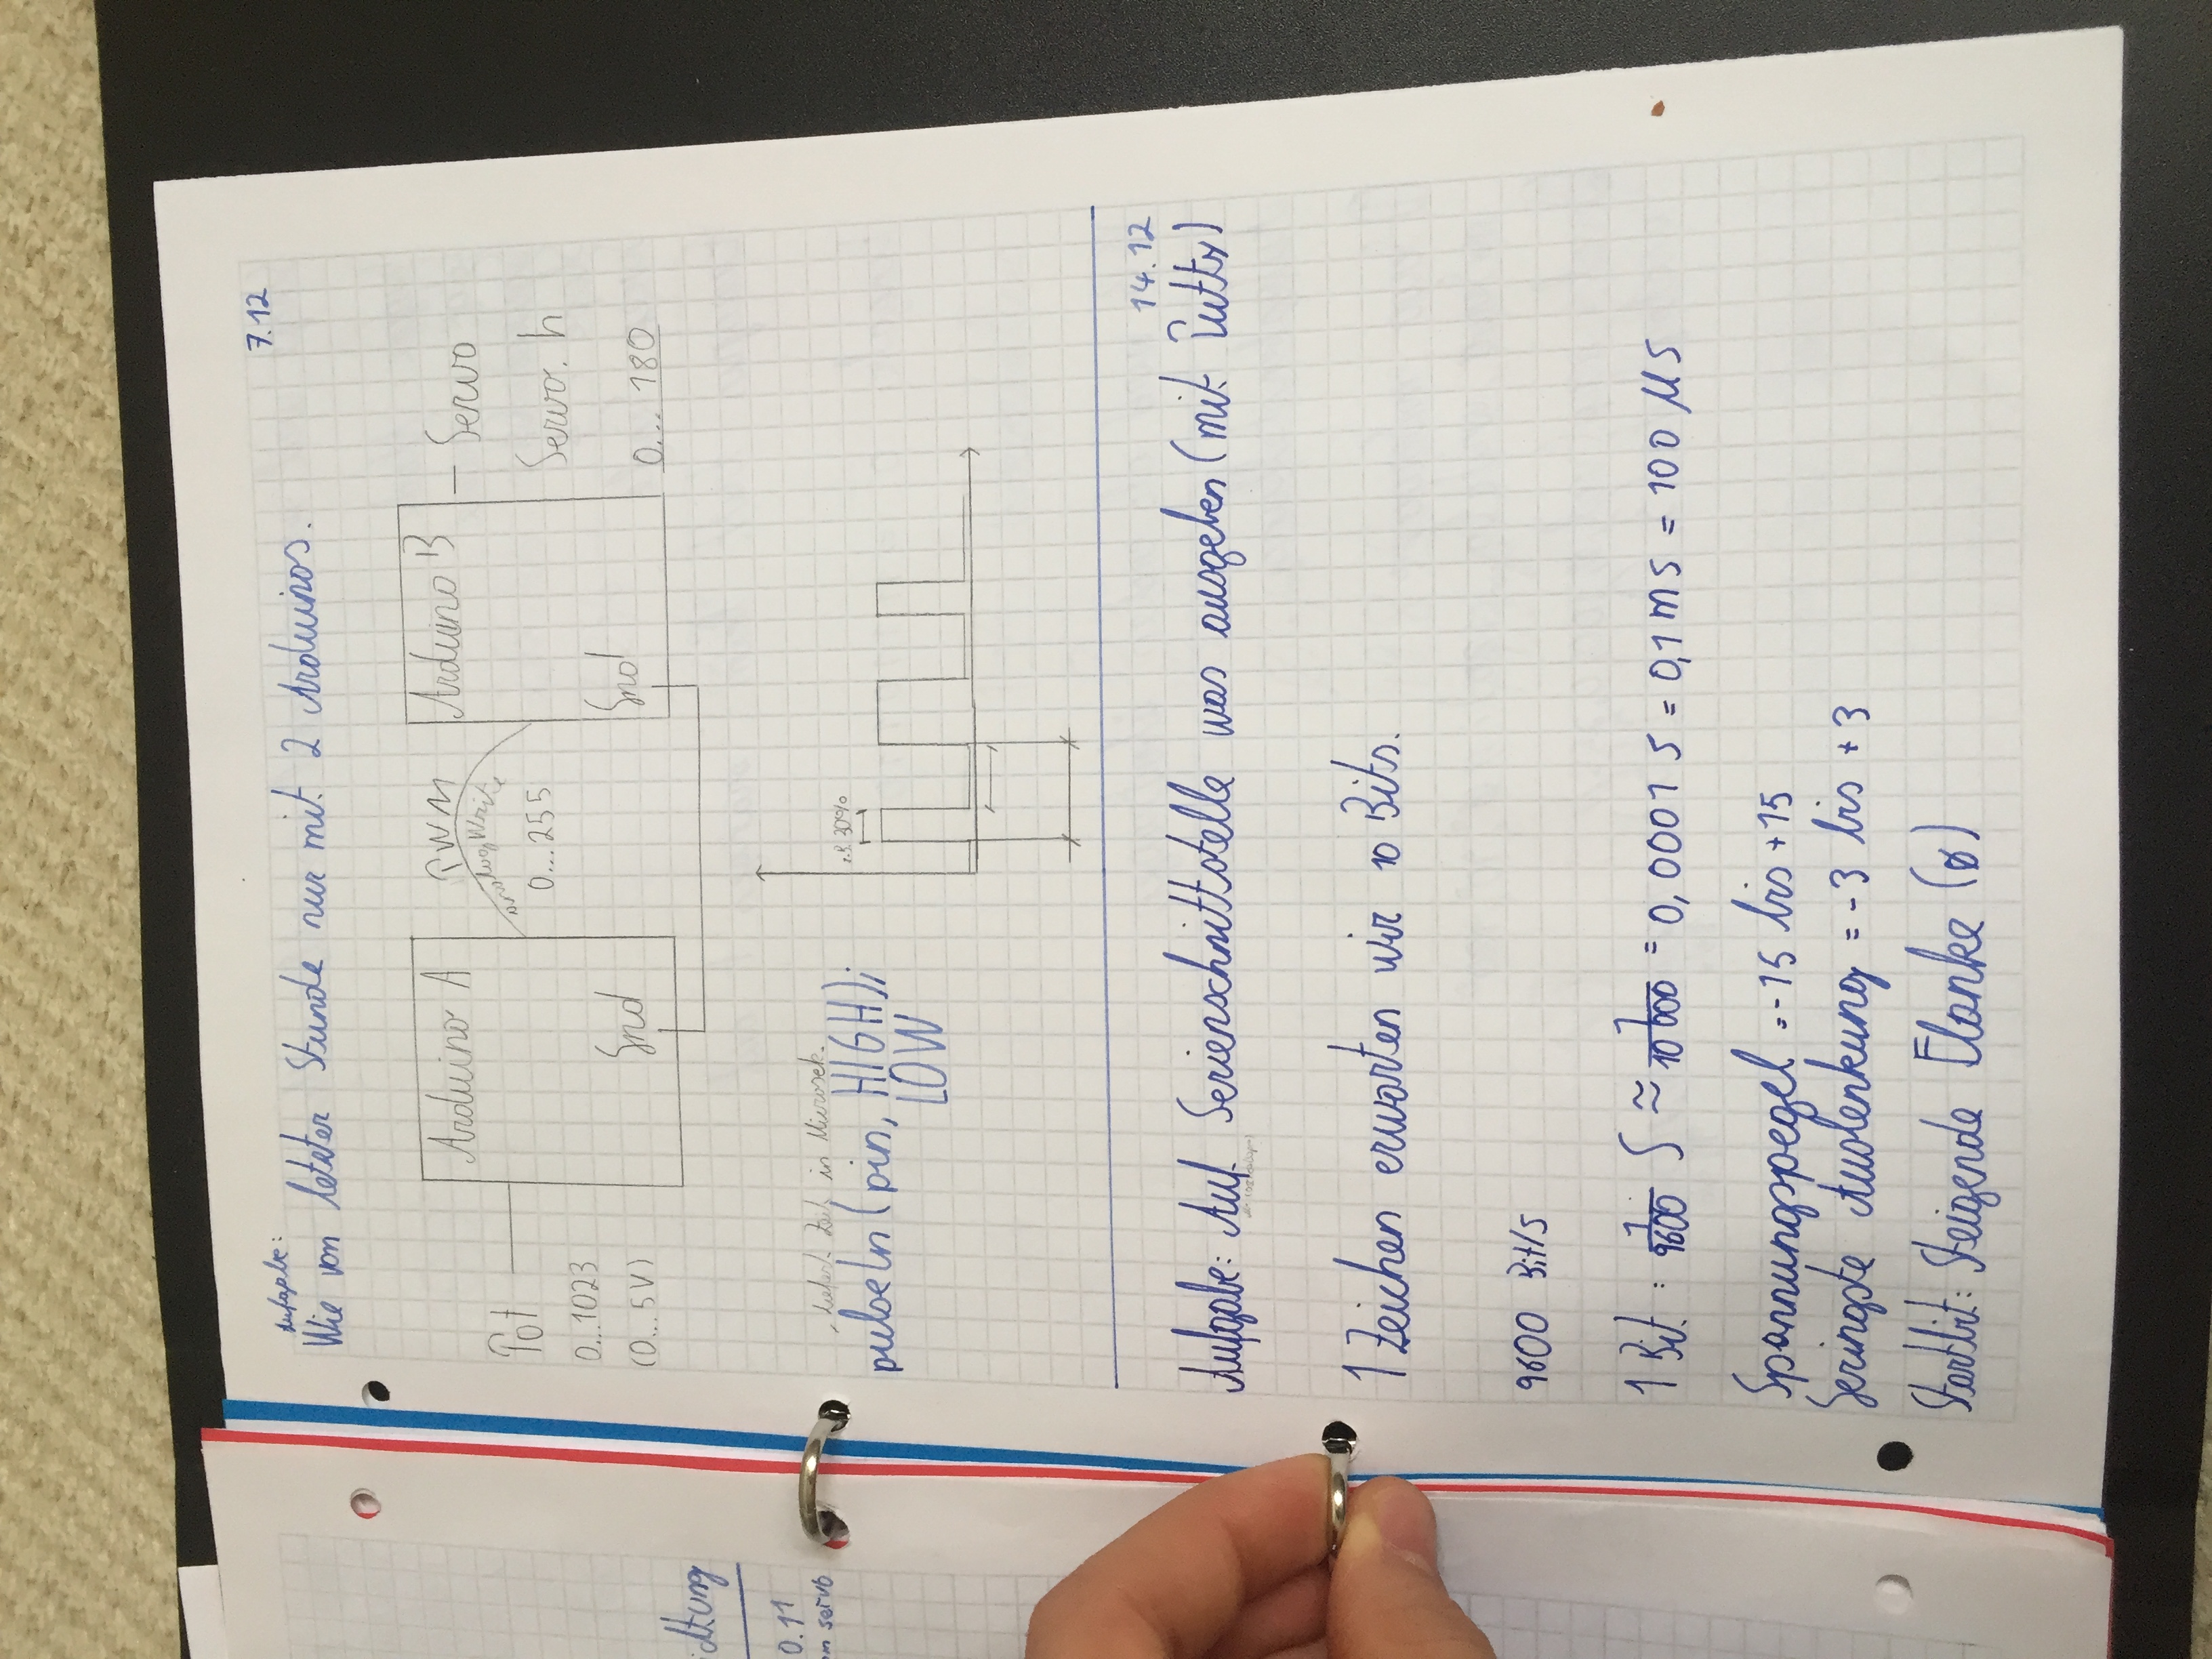 ichtung
0.11
servo
7.12
Aufgabe:
Wie von letzter Stunde nur mit 2 Arduinos.
Arduino A
PWM
analogWrite
0...255
Arduino B
Servo
Pot
0...1023
(0...5V)
Servo.h
0... 180
Gnd
Gnd
liefert Zeit in Microsek.
pulseIn(pin, HIGH);
LOW
z.B. 30%
14.12
Aufgabe: Auf Serienschnittstelle was ausgeben (mit Putty)
1 Zeichen erwarten wir 10 Bits.
9600 Bit/s
1 Bit: 1/9600 S ≈ 1/10000 = 0,0001 s = 0,1 ms = 100 µs
Spannungspegel = -15 bis +15
Geringste Auslenkung = -3 bis +3
Startbit: Steigende Flanke (0)